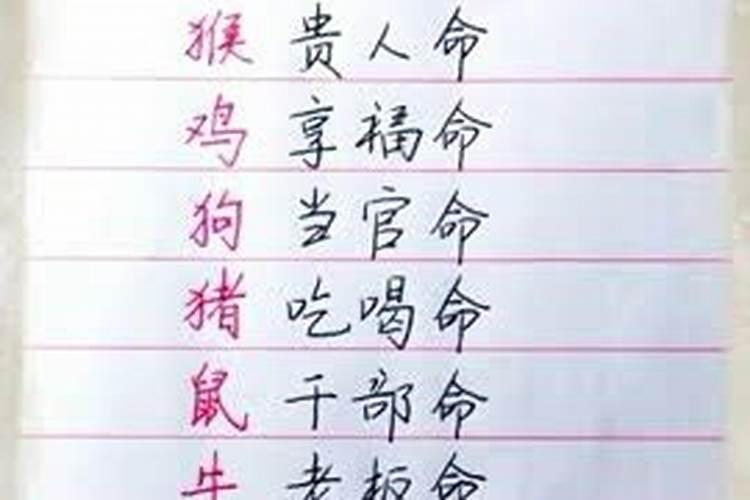 猴 贵人命
鸡 享福命
狗 当官命
猪 吃喝命
鼠 干部命
牛 老板命